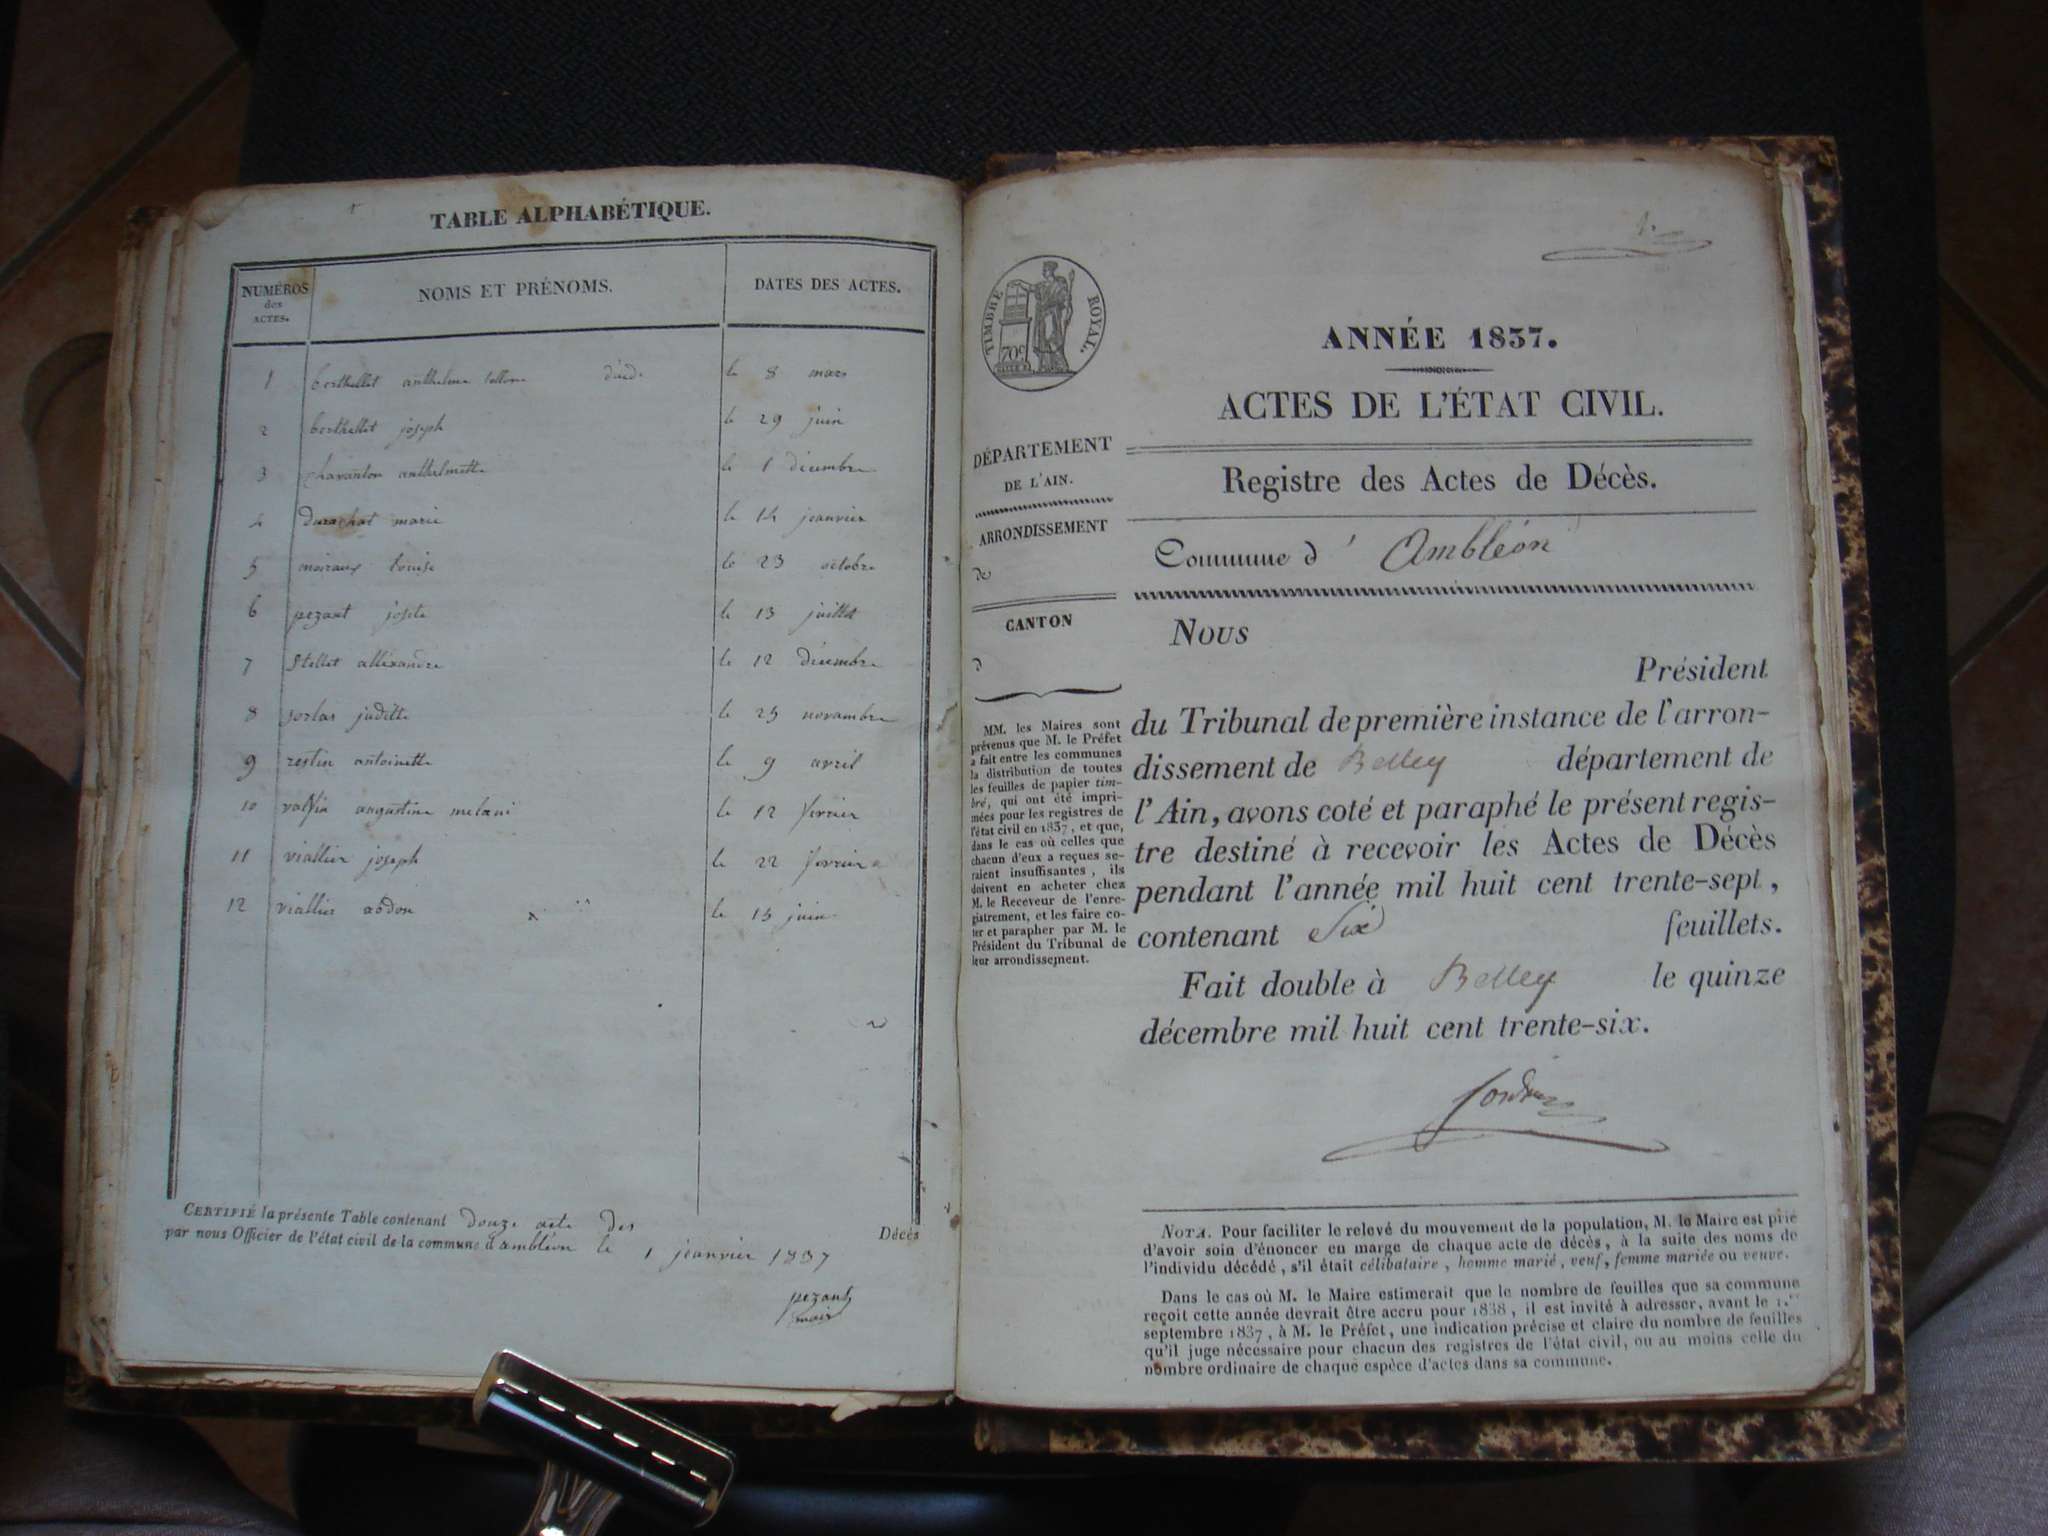 TABLE ALPHABÉTIQUE.
NUMÉROS des ACTES. NOMS ET PRÉNOMS. DATES DES ACTES.
1 berthellet anthelme le 8 mars
2 berthellet joseph le 29 juin
3 chavanton anthelmette le 1 décembre
4 marie le 14 jeanvier
5 moiraux louise le 23 octobre
6 pezant josete le 13 juillet
7 Stellet alléxandre le 12 décembre
8 juditte le 25 novambre
9 restin antoinette le 9 avril
10 augustine melani le 12 fevrier
11 viallier joseph le 22 fevrier
12 viallier abdon le 15 juin
CERTIFIÉ la présente Table contenant douze acte des Décès
par nous Officier de l'état civil de la commune d'ambléon le 1 jeanvier 1837
pezant
mair
1.
TIMBRE ROYAL.
70c
ANNÉE 1837.
ACTES DE L'ÉTAT CIVIL.
DÉPARTEMENT
DE L'AIN.
ARRONDISSEMENT
de
CANTON
d
MM. les Maires sont
prévenus que M. le Préfet
a fait entre les communes
la distribution de toutes
les feuilles de papier tim-
bré, qui ont été impri-
mées pour les registres de
l'état civil en 1837, et que,
dans le cas où celles que
chacun d'eux a reçues se-
raient insuffisantes, ils
doivent en acheter chez
M. le Receveur de l'enre-
gistrement, et les faire co-
ter et parapher par M. le
Président du Tribunal de
leur arrondissement.
Registre des Actes de Décès.
Commune d' Ambléon
Nous
Président
du Tribunal de première instance de l'arron-
dissement de Belley département de
l'Ain, avons coté et paraphé le présent regis-
tre destiné à recevoir les Actes de Décès
pendant l'année mil huit cent trente-sept,
contenant Six feuillets.
Fait double à Belley le quinze
décembre mil huit cent trente-six.
NOTA. Pour faciliter le relevé du mouvement de la population, M. le Maire est prié
d'avoir soin d'énoncer en marge de chaque acte de décès, à la suite des noms de
l'individu décédé, s'il était célibataire, homme marié, veuf, femme mariée ou veuve.
Dans le cas où M. le Maire estimerait que le nombre de feuilles que sa commune
reçoit cette année devrait être accru pour 1838, il est invité à adresser, avant le 1.er
septembre 1837, à M. le Préfet, une indication précise et claire du nombre de feuilles
qu'il juge nécessaire pour chacun des registres de l'état civil, ou au moins celle du
nombre ordinaire de chaque espèce d'actes dans sa commune.